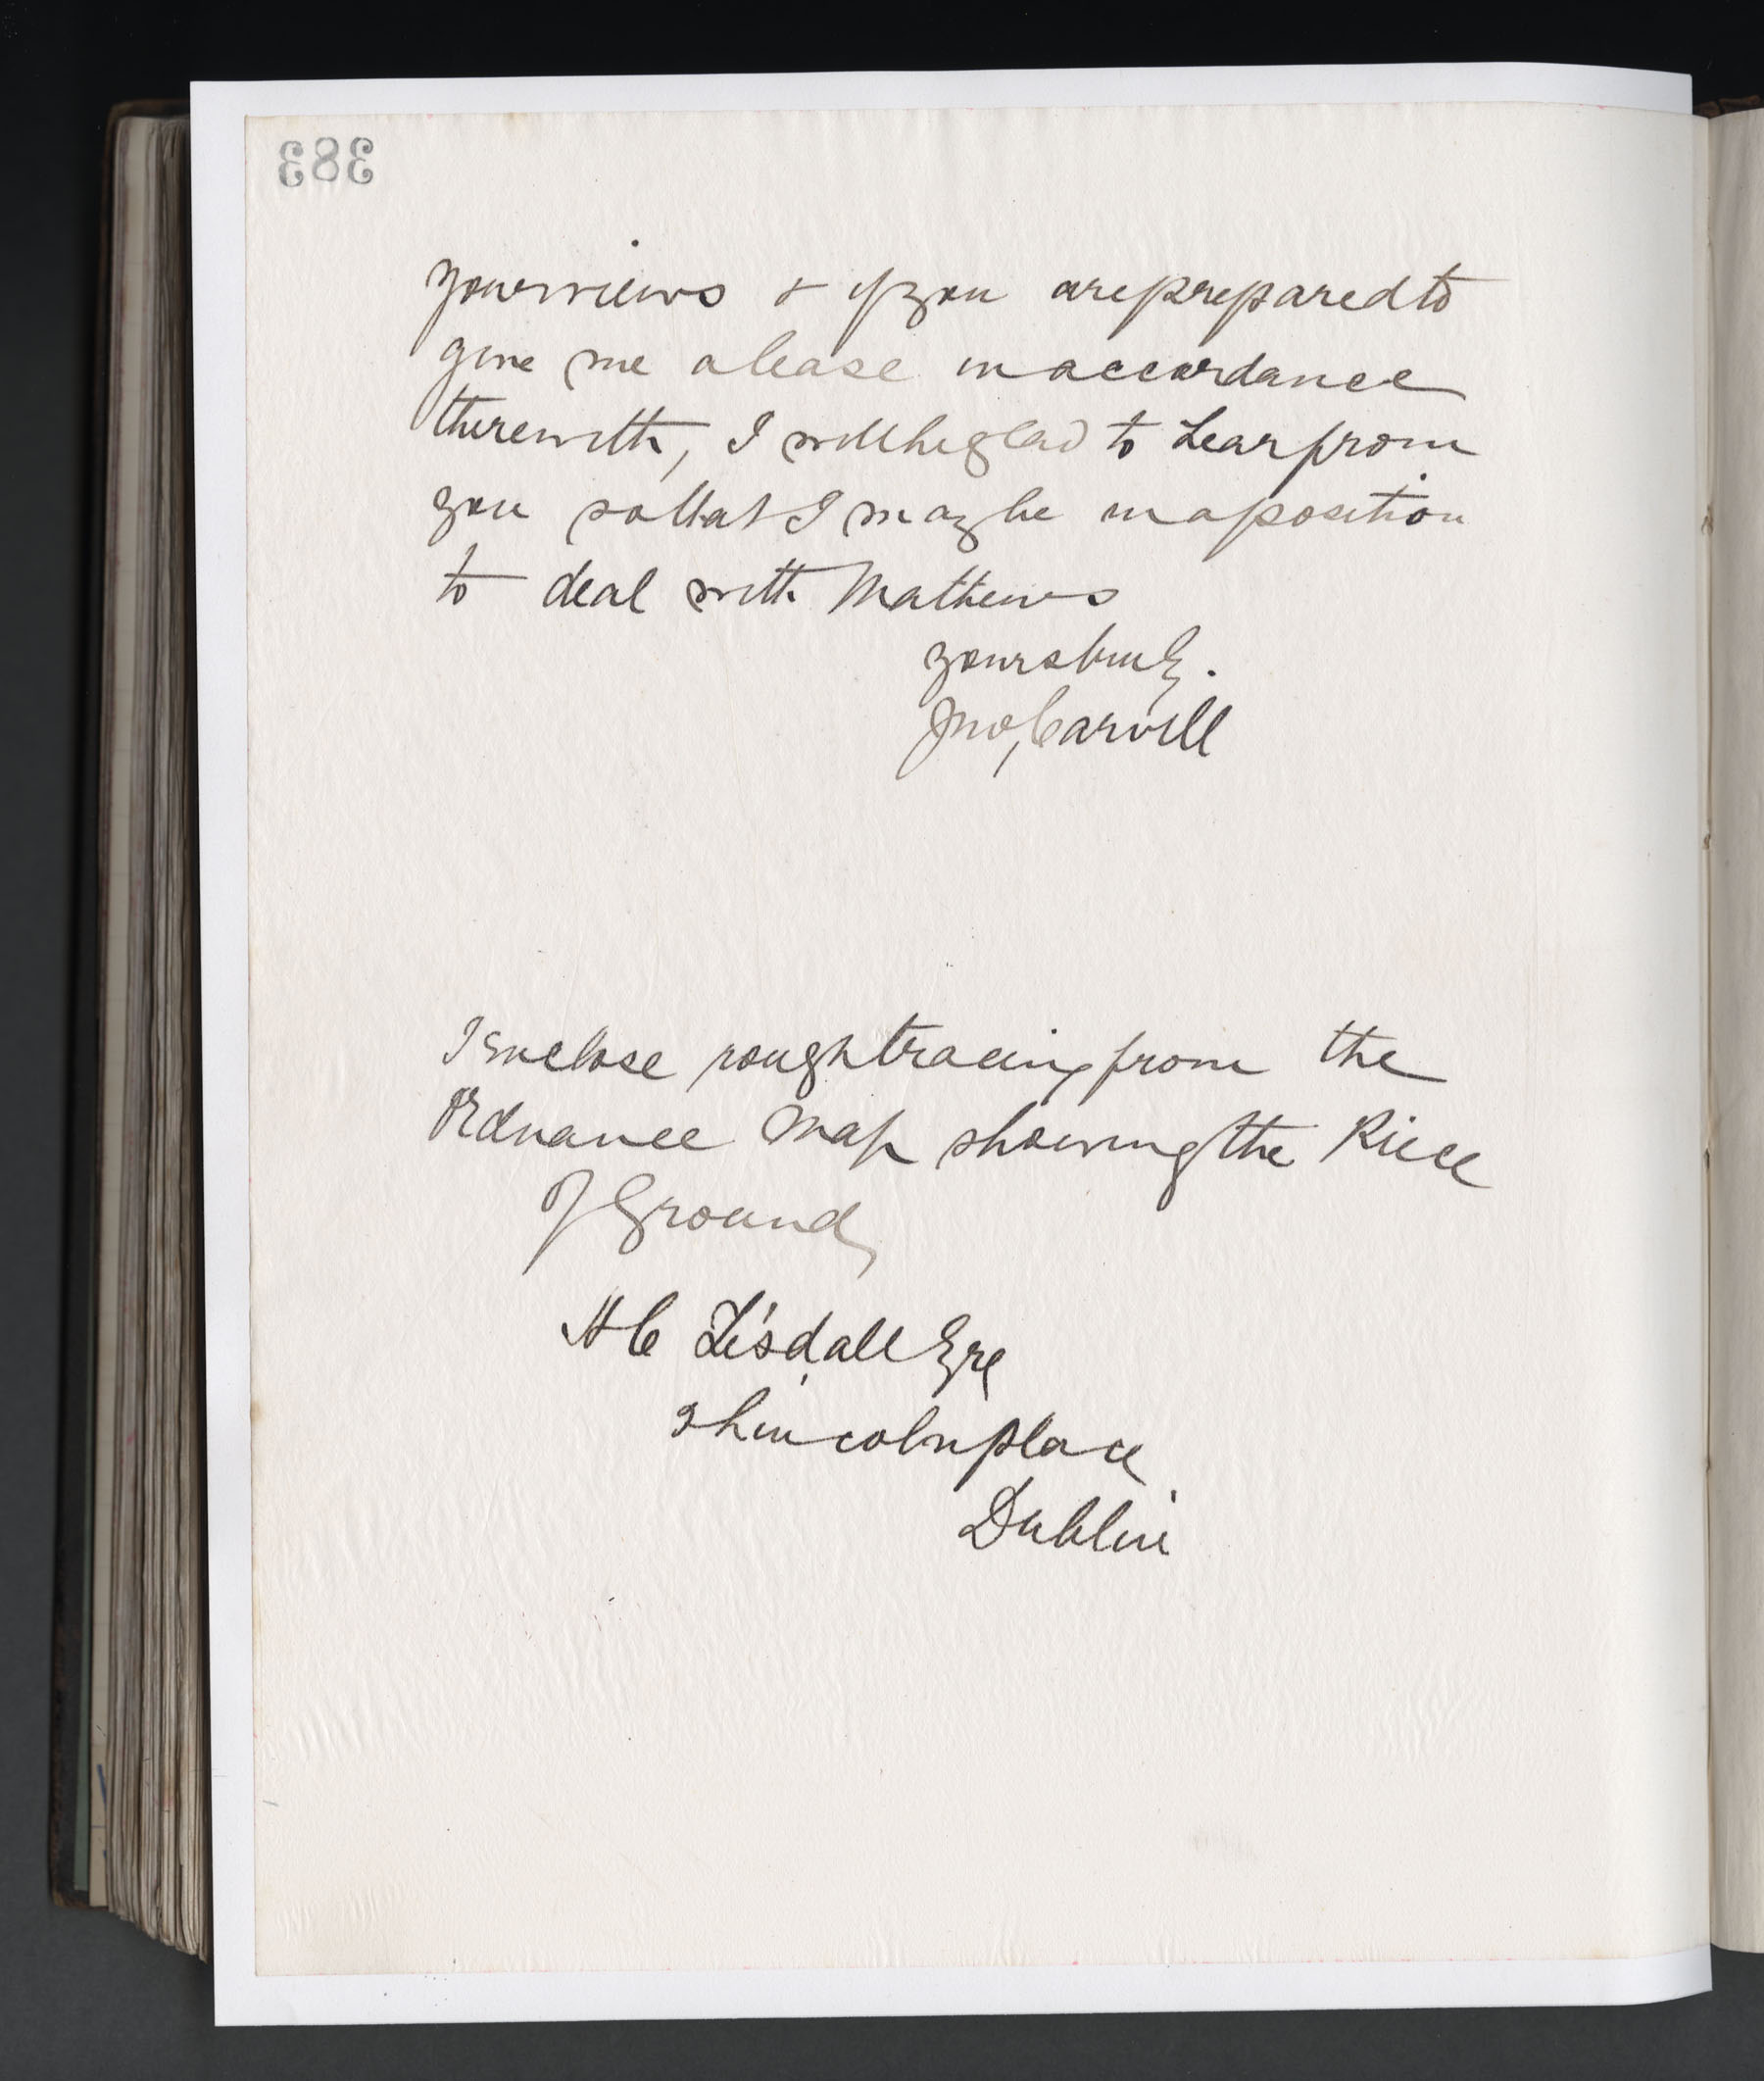 383
your views & if you are prepared to
give me a lease in accordance
therewith, I will be glad to hear from
you so that I may be in a position
to deal with Mathews
yours truly.
Jno, Carvill
I Enclose rough tracing from the
Ordnance Map showing the Piece
of Ground
H C Tisdall Esq
Lincoln place
Dublin